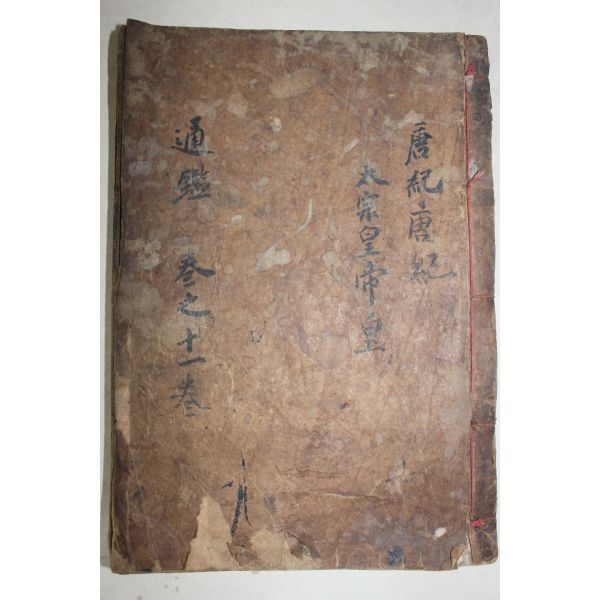 唐紀唐紀
太宗皇帝皇
通鑑 卷之十一卷